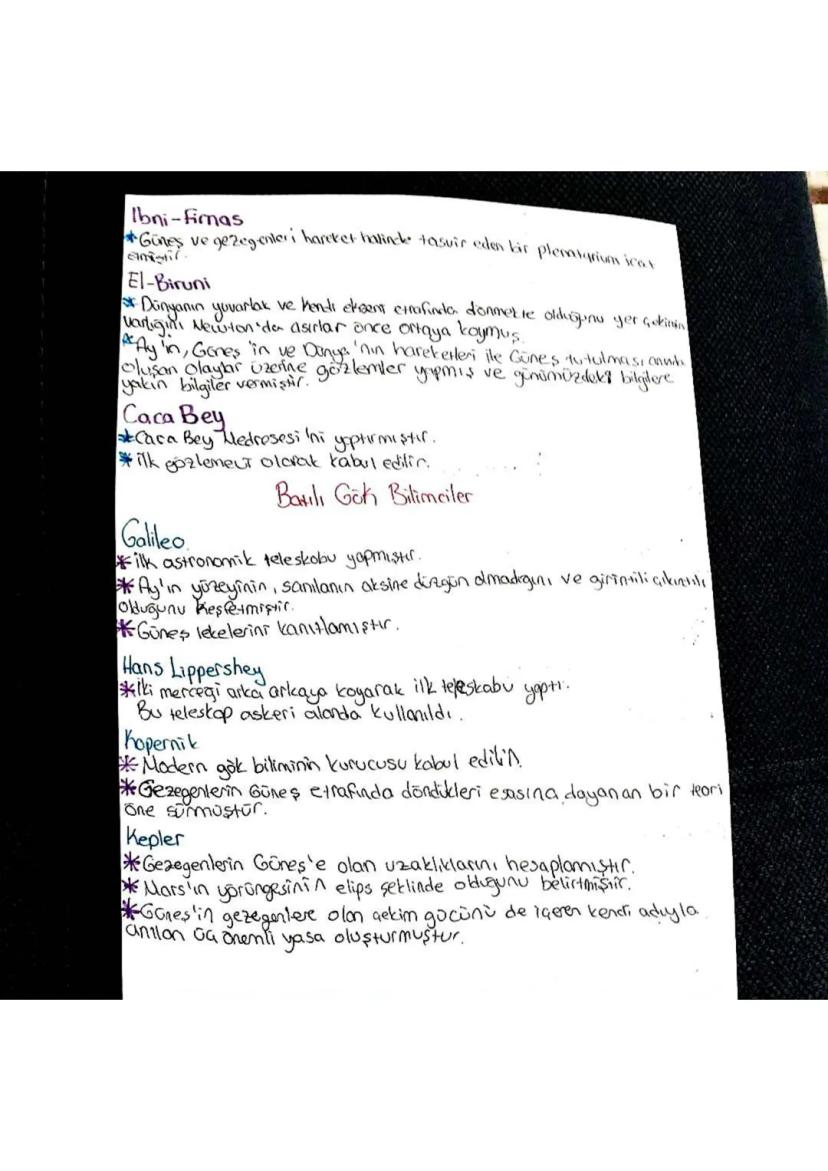 İbni-Firnas
*Güneş ve gezegenleri hareket halinde tasvir eden bir plenatyrium icat
etmiştir.
El-Biruni
* Dünyanın yuvarlak ve kendi ekseni etrafında dönmekte olduğunu yer çekinin
varlığını Newton'den asırlar önce ortaya koymuş.
*Ay'ın, Güneş'in ve Dünya'nın hareketleri ile Güneş tutulması anında
oluşan olaylar üzerine gözlemler yapmış ve günümüzdeki bilgilere
yakın bilgiler vermiştir.
Caca Bey
*Caca Bey Medresesi'ni yaptırmıştır.
*ilk gözlemevi olarak kabul edilir.
Batılı Gök Bilimciler
Galileo
*ilk astronomik teleskobu yapmıştır.
*Ay'ın yüzeyinin, sanılanın aksine düzgün olmadığını ve girintili çıkıntılı
olduğunu keşfetmiştir.
*Güneş lekelerini kanıtlamıştır.
Hans Lippershey
*iki merceği arka arkaya koyarak ilk teleskobu yaptı.
Bu teleskop askeri alanda kullanıldı.
Kopernik
*Modern gök biliminin kurucusu kabul edilir.
*Gezegenlerin Güneş etrafında döndükleri esasına dayanan bir teori
öne sürmüştür.
Kepler
*Gezegenlerin Güneş'e olan uzaklıklarını hesaplamıştır.
*Mars'ın yörüngesinin elips şeklinde olduğunu belirtmiştir.
*Güneş'in gezegenlere olan çekim gücünü de içeren kendi adıyla
anılan üç önemli yasa oluşturmuştur.